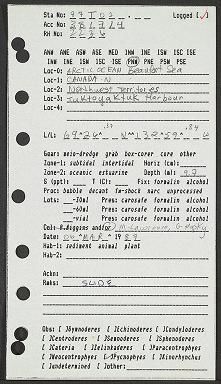 Sta No: Logged [✓]
Acc No:
RH No:
ANW ANE ASW ASE MED INW INE ISW ISC ISE
INW INE ISW ISC ISE PNW PNE PSW PSE
Loc-0: ARCTIC OCEAN Beaufort Sea
Loc-1: CANADA-N
Loc-2: Northwest Territories
Loc-3: Tuktoyaktuk Harbour
Loc-4:
L/L:
Gear: meio-dredge grab box-corer core other
Zone-1: subtidal intertidal Horiz (cm):
Zone-2: oceanic estuarine Depth (m):
S (ppt): T (C): Fix: formalin alcohol
Proc: bubble decant fw-shock narc unprocessed
Lots: -30ml Pres: carosafe formalin alcohol
-60ml Pres: carosafe formalin alcohol
-vial Pres: carosafe formalin alcohol
Col: R.Higgins and/or
Date: MAR
Hab-1: sediment animal plant
Hab-2:
Ackn:
Rmks: SLIDE
Obs: [ ]Gymnoderes [ ]Echinoderes [ ]Condyloderes
[ ]Centroderes [ ]Semnoderes [ ]Sphenoderes
[ ]Cateria [ ]Zelinkaderes [ ]Paracentrophyes
[ ]Neocentrophyes [ ]Pycnophyes [ ]Kinorhynchus
[ ]undetermined [ ]other: